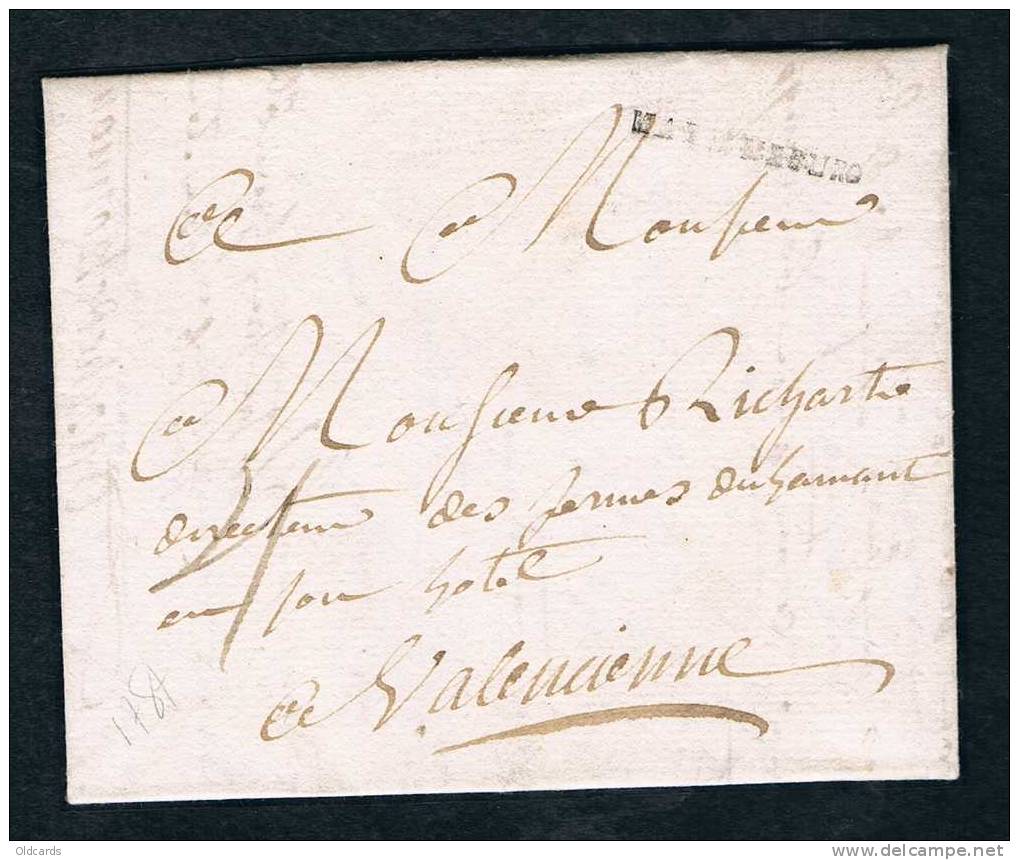 A Monsieur
Monsieur Richart
directeur des fermes du hainaut
en son hotel
a Valencienne
Oldcards
www.delcampe.net